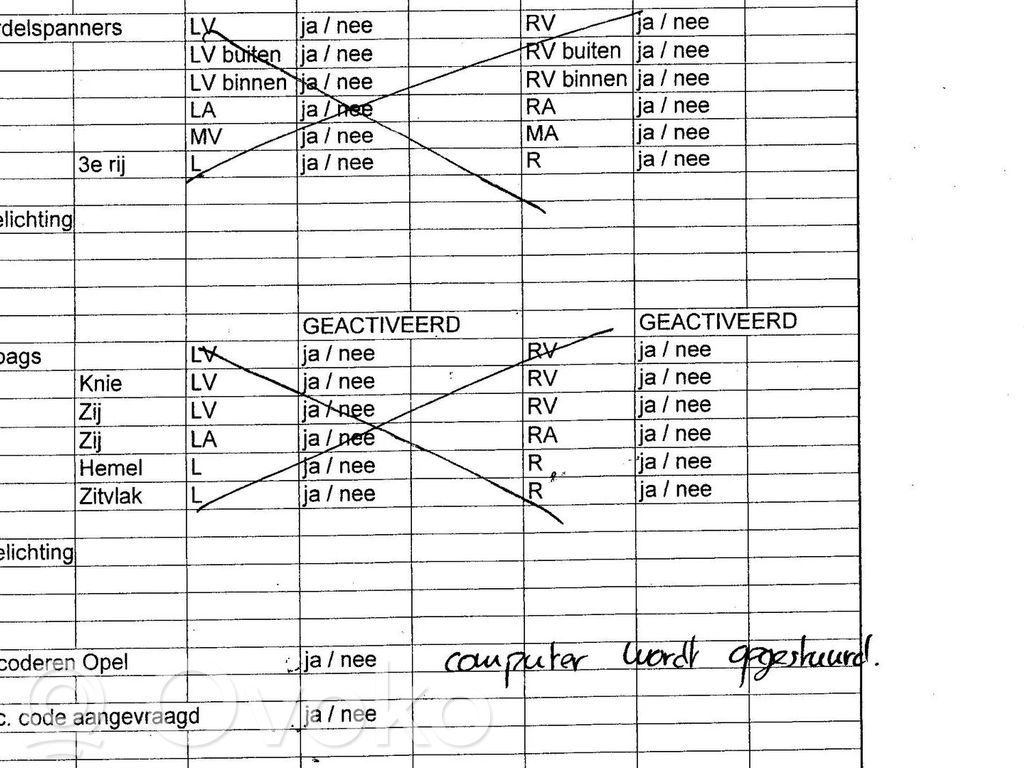 rdelspanners LV ja / nee RV ja / nee
LV buiten ja / nee RV buiten ja / nee
LV binnen ja / nee RV binnen ja / nee
LA ja / nee RA ja / nee
MV ja / nee MA ja / nee
3e rij L ja / nee R ja / nee
elichting
GEACTIVEERD GEACTIVEERD
bags LV ja / nee RV ja / nee
Knie LV ja / nee RV ja / nee
Zij LV ja / nee RV ja / nee
Zij LA ja / nee RA ja / nee
Hemel L ja / nee R ja / nee
Zitvlak L ja / nee R ja / nee
elichting
coderen Opel ja / nee computer wordt opgestuurd.
c. code aangevraagd ja / nee
Ovoko